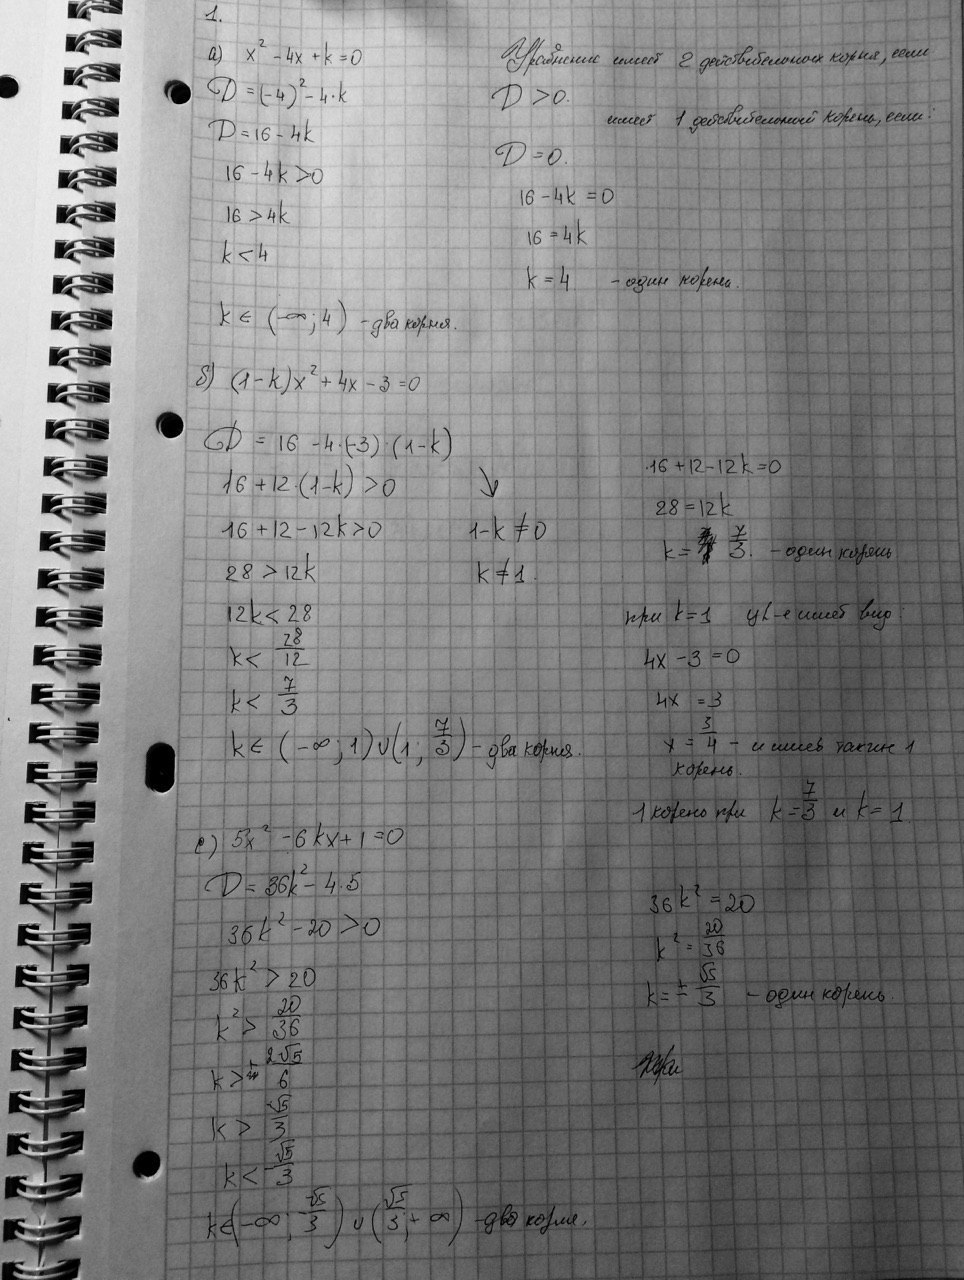 1.
а) x² - 4x + k = 0
D = (-4)² - 4·k
D = 16 - 4k
16 - 4k > 0
16 > 4k
k < 4
k ∈ (-∞; 4) - два корня.
Уравнение имеет 2 действительных корня, если
D > 0.
имеет 1 действительный корень, если:
D = 0.
16 - 4k = 0
16 = 4k
k = 4 - один корень.
б) (1-k)x² + 4x - 3 = 0
D = 16 - 4·(-3)·(1-k)
16 + 12·(1-k) > 0
16 + 12 - 12k > 0
28 > 12k
12k < 28
k < 28/12
k < 7/3
k ∈ (-∞; 1) ∪ (1; 7/3) - два корня.
↘
1-k ≠ 0
k ≠ 1.
16 + 12 - 12k = 0
28 = 12k
k = 7/3. - один корень
при k = 1 ур-е имеет вид:
4x - 3 = 0
4x = 3
x = 3/4 - и имеет также 1
корень.
1 корень при k = 7/3 и k = 1.
с) 5x² - 6kx + 1 = 0
D = 36k² - 4·5
36k² - 20 > 0
36k² > 20
k² > 20/36
k > ± 2√5/6
k > √5/3
k < -√5/3
k ∈ (-∞; √5/3) ∪ (√5/3; +∞) - два корня.
36k² = 20
k² = 20/36
k = ± √5/3 - один корень.